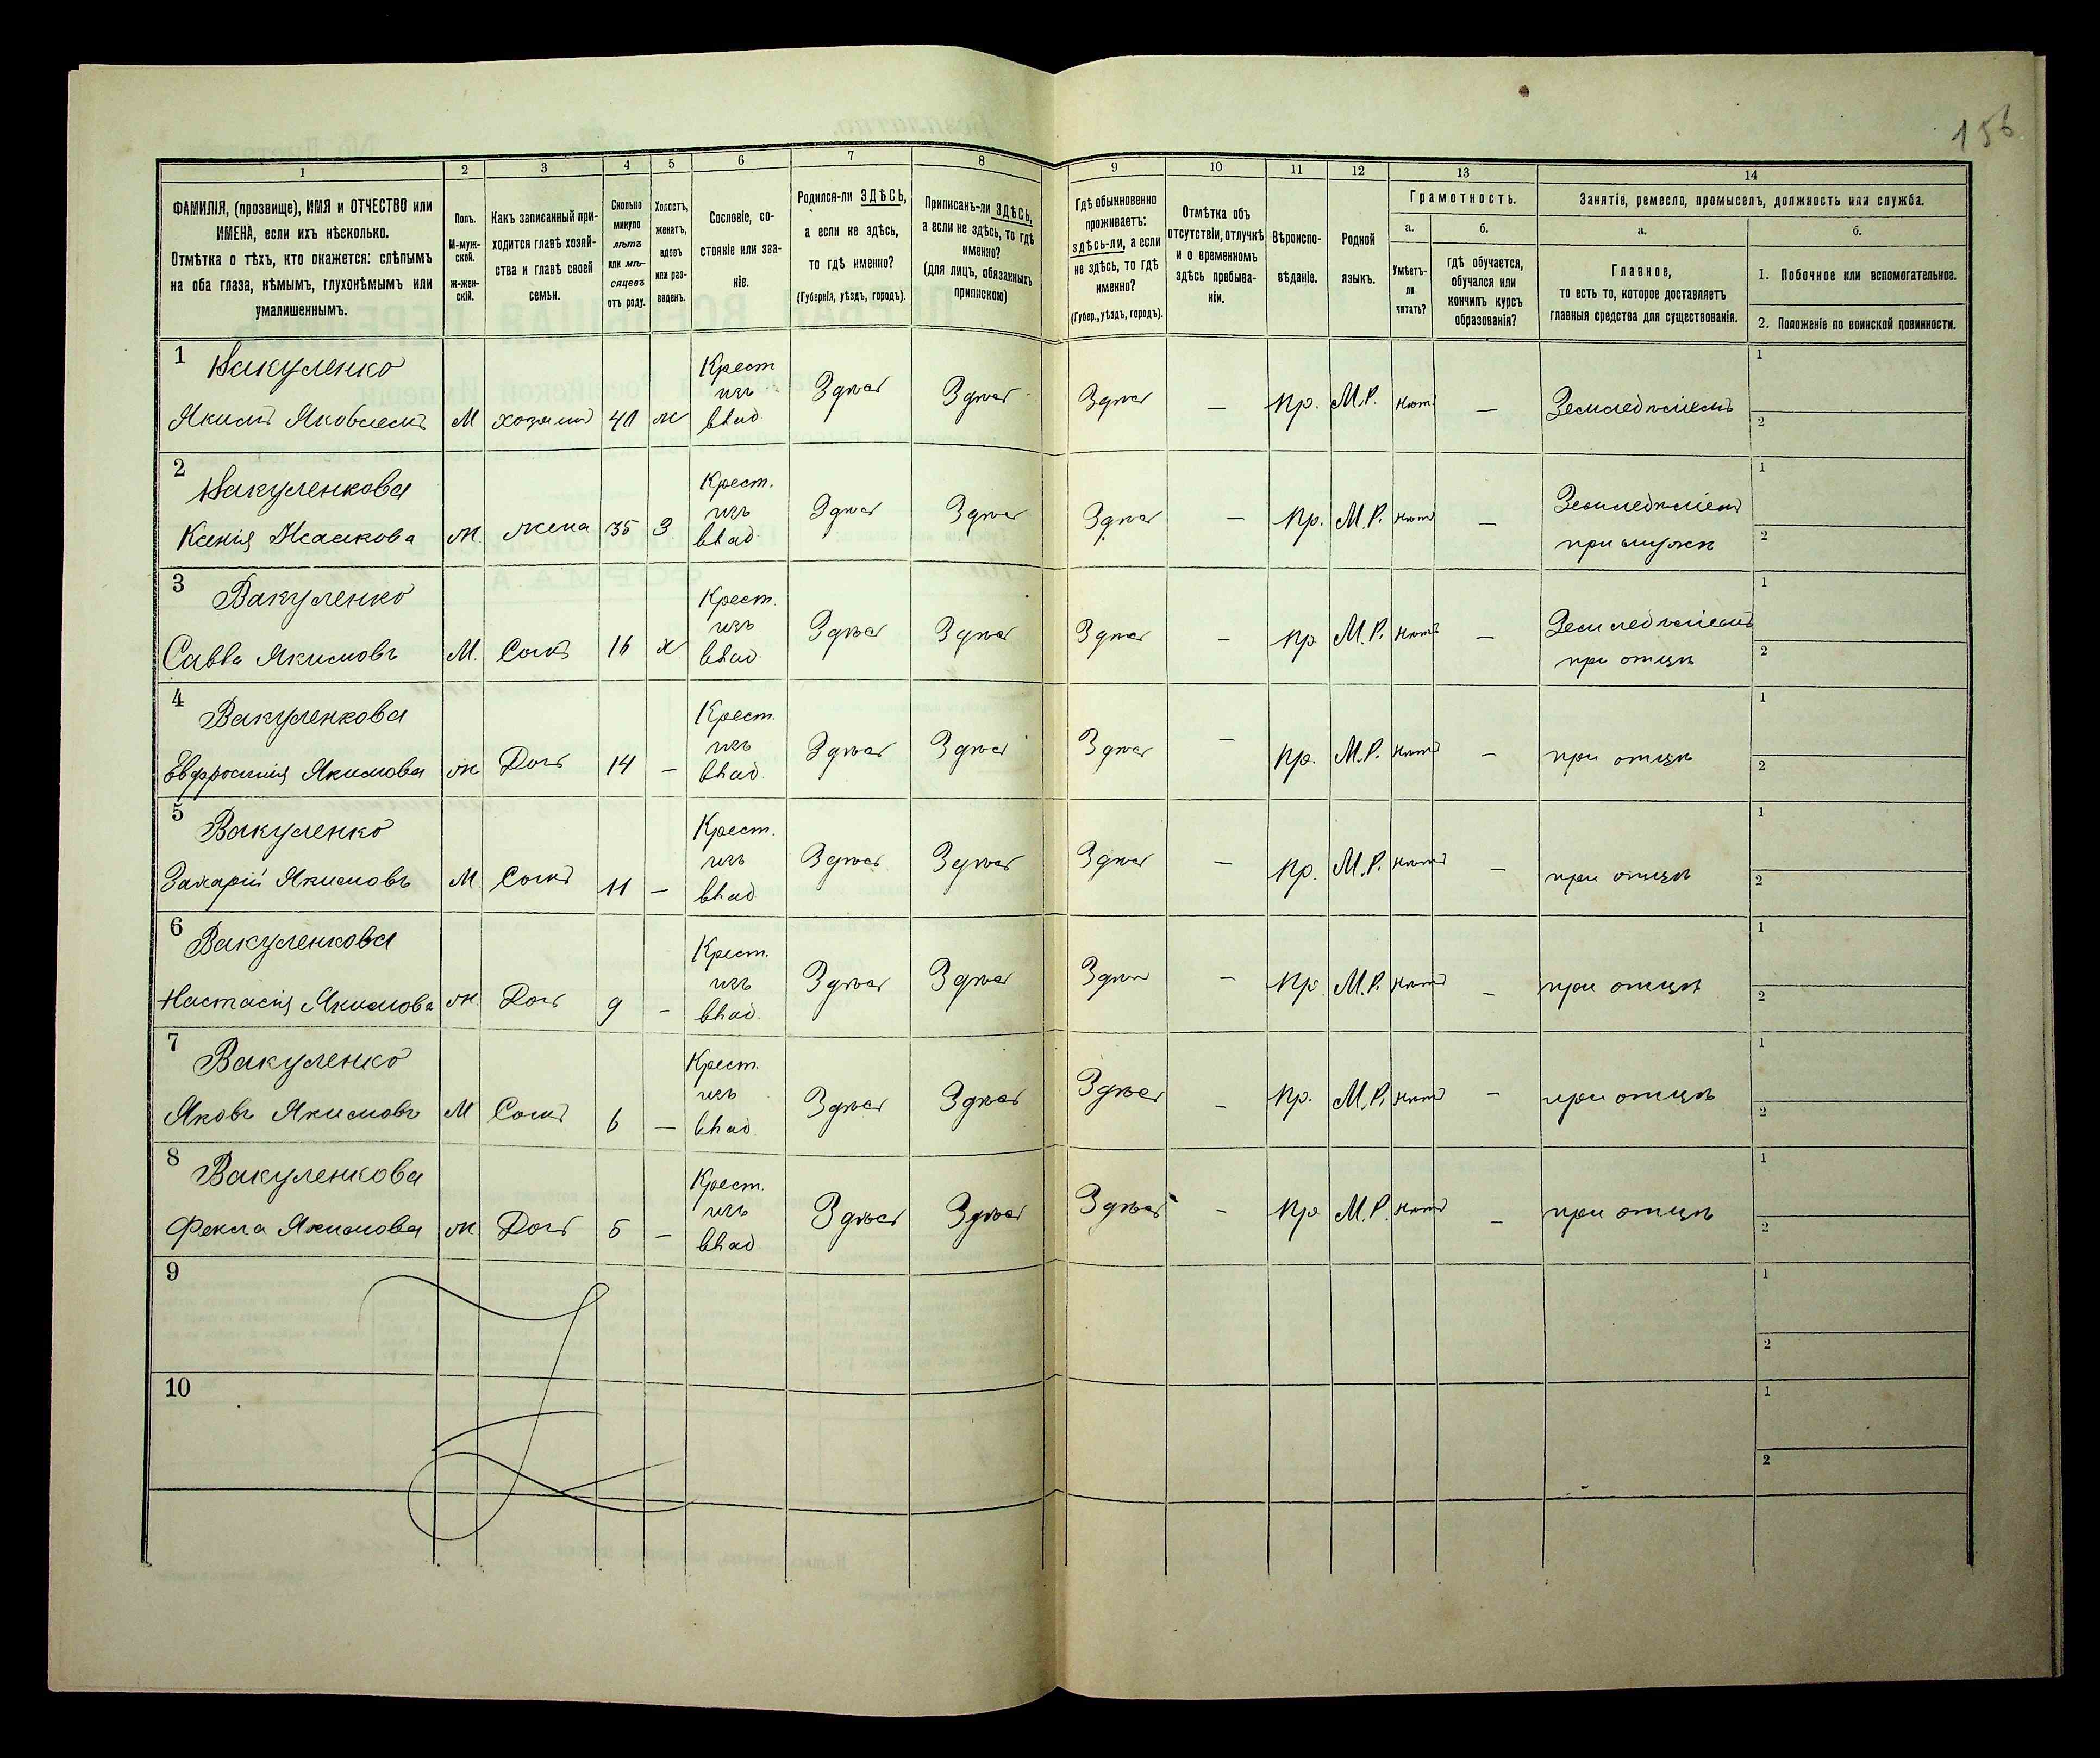 156
1 2 3 4 5 6 7 8 9 10 11 12 13 14
ФАМИЛІЯ, (прозвище), ИМЯ и ОТЧЕСТВО или ИМЕНА, если ихъ нѣсколько.
Отмѣтка о тѣхъ, кто окажется: слѣпымъ на оба глаза, нѣмымъ, глухонѣмымъ или умалишеннымъ.
Полъ.
М-мужской.
Ж-женскій.
Какъ записанный приходится главѣ хозяйства и главѣ своей семьи.
Сколько минуло лѣтъ или мѣсяцевъ отъ роду.
Холостъ, женатъ, вдовъ или разведенъ.
Сословіе, состояніе или званіе.
Родился-ли ЗДѢСЬ, а если не здѣсь, то гдѣ именно?
(Губернія, уѣздъ, городъ).
Приписанъ-ли ЗДѢСЬ, а если не здѣсь, то гдѣ именно?
(для лицъ, обязанныхъ припискою)
Гдѣ обыкновенно проживаетъ: здѣсь-ли, а если не здѣсь, то гдѣ именно?
(Губер., уѣздъ, городъ).
Отмѣтка объ отсутствіи, отлучкѣ и о временномъ здѣсь пребываніи.
Вѣроисповѣданіе.
Родной языкъ.
Грамотность.
а. б.
Умѣетъ-ли читать?
гдѣ обучается, обучался или кончилъ курсъ образованія?
Занятіе, ремесло, промыселъ, должность или служба.
а. б.
Главное,
то есть то, которое доставляетъ главныя средства для существованія.
1. Побочное или вспомогательное.
2. Положеніе по воинской повинности.
1 Вакуленко Крест. 1
изъ Здѣсь Здѣсь Здѣсь — Пр. М.Р. Нѣтъ — Земледѣліемъ
Якимъ Яковлевъ М хозяинъ 40 ж влад. 2
2 Вакуленкова Крест. 1
изъ Здѣсь Здѣсь Здѣсь — Пр. М.Р. Нѣтъ — Земледѣліемъ
Ксенія Исаакова Ж. жена 35 З влад. при мужѣ 2
3 Вакуленко Крест. 1
изъ Здѣсь Здѣсь Здѣсь — Пр М.Р. Нѣтъ — Земледѣліемъ
Савва Якимовъ М. Сынъ 16 х влад. при отцѣ 2
4 Вакуленкова Крест. 1
изъ Здѣсь Здѣсь Здѣсь — Пр. М.Р. Нѣтъ — при отцѣ
Евфросинія Якимова Ж Дочь 14 — влад. 2
5 Вакуленко Крест. 1
изъ Здѣсь Здѣсь Здѣсь — Пр. М.Р. Нѣтъ — при отцѣ
Захарій Якимовъ М. Сынъ 11 — влад. 2
6 Вакуленкова Крест. 1
изъ Здѣсь Здѣсь Здѣсь — Пр. М.Р. Нѣтъ — при отцѣ
Настасія Якимова Ж. Дочь 9 — влад. 2
7 Вакуленко Крест. 1
изъ Здѣсь Здѣсь Здѣсь — Пр. М.Р. Нѣтъ — при отцѣ
Яковъ Якимовъ М Сынъ 6 — влад 2
8 Вакуленкова Крест. 1
изъ Здѣсь Здѣсь Здѣсь — Пр М.Р. Нѣтъ — при отцѣ
Фекла Якимова Ж Дочь 5 — влад. 2
9 1
2
10 1
2